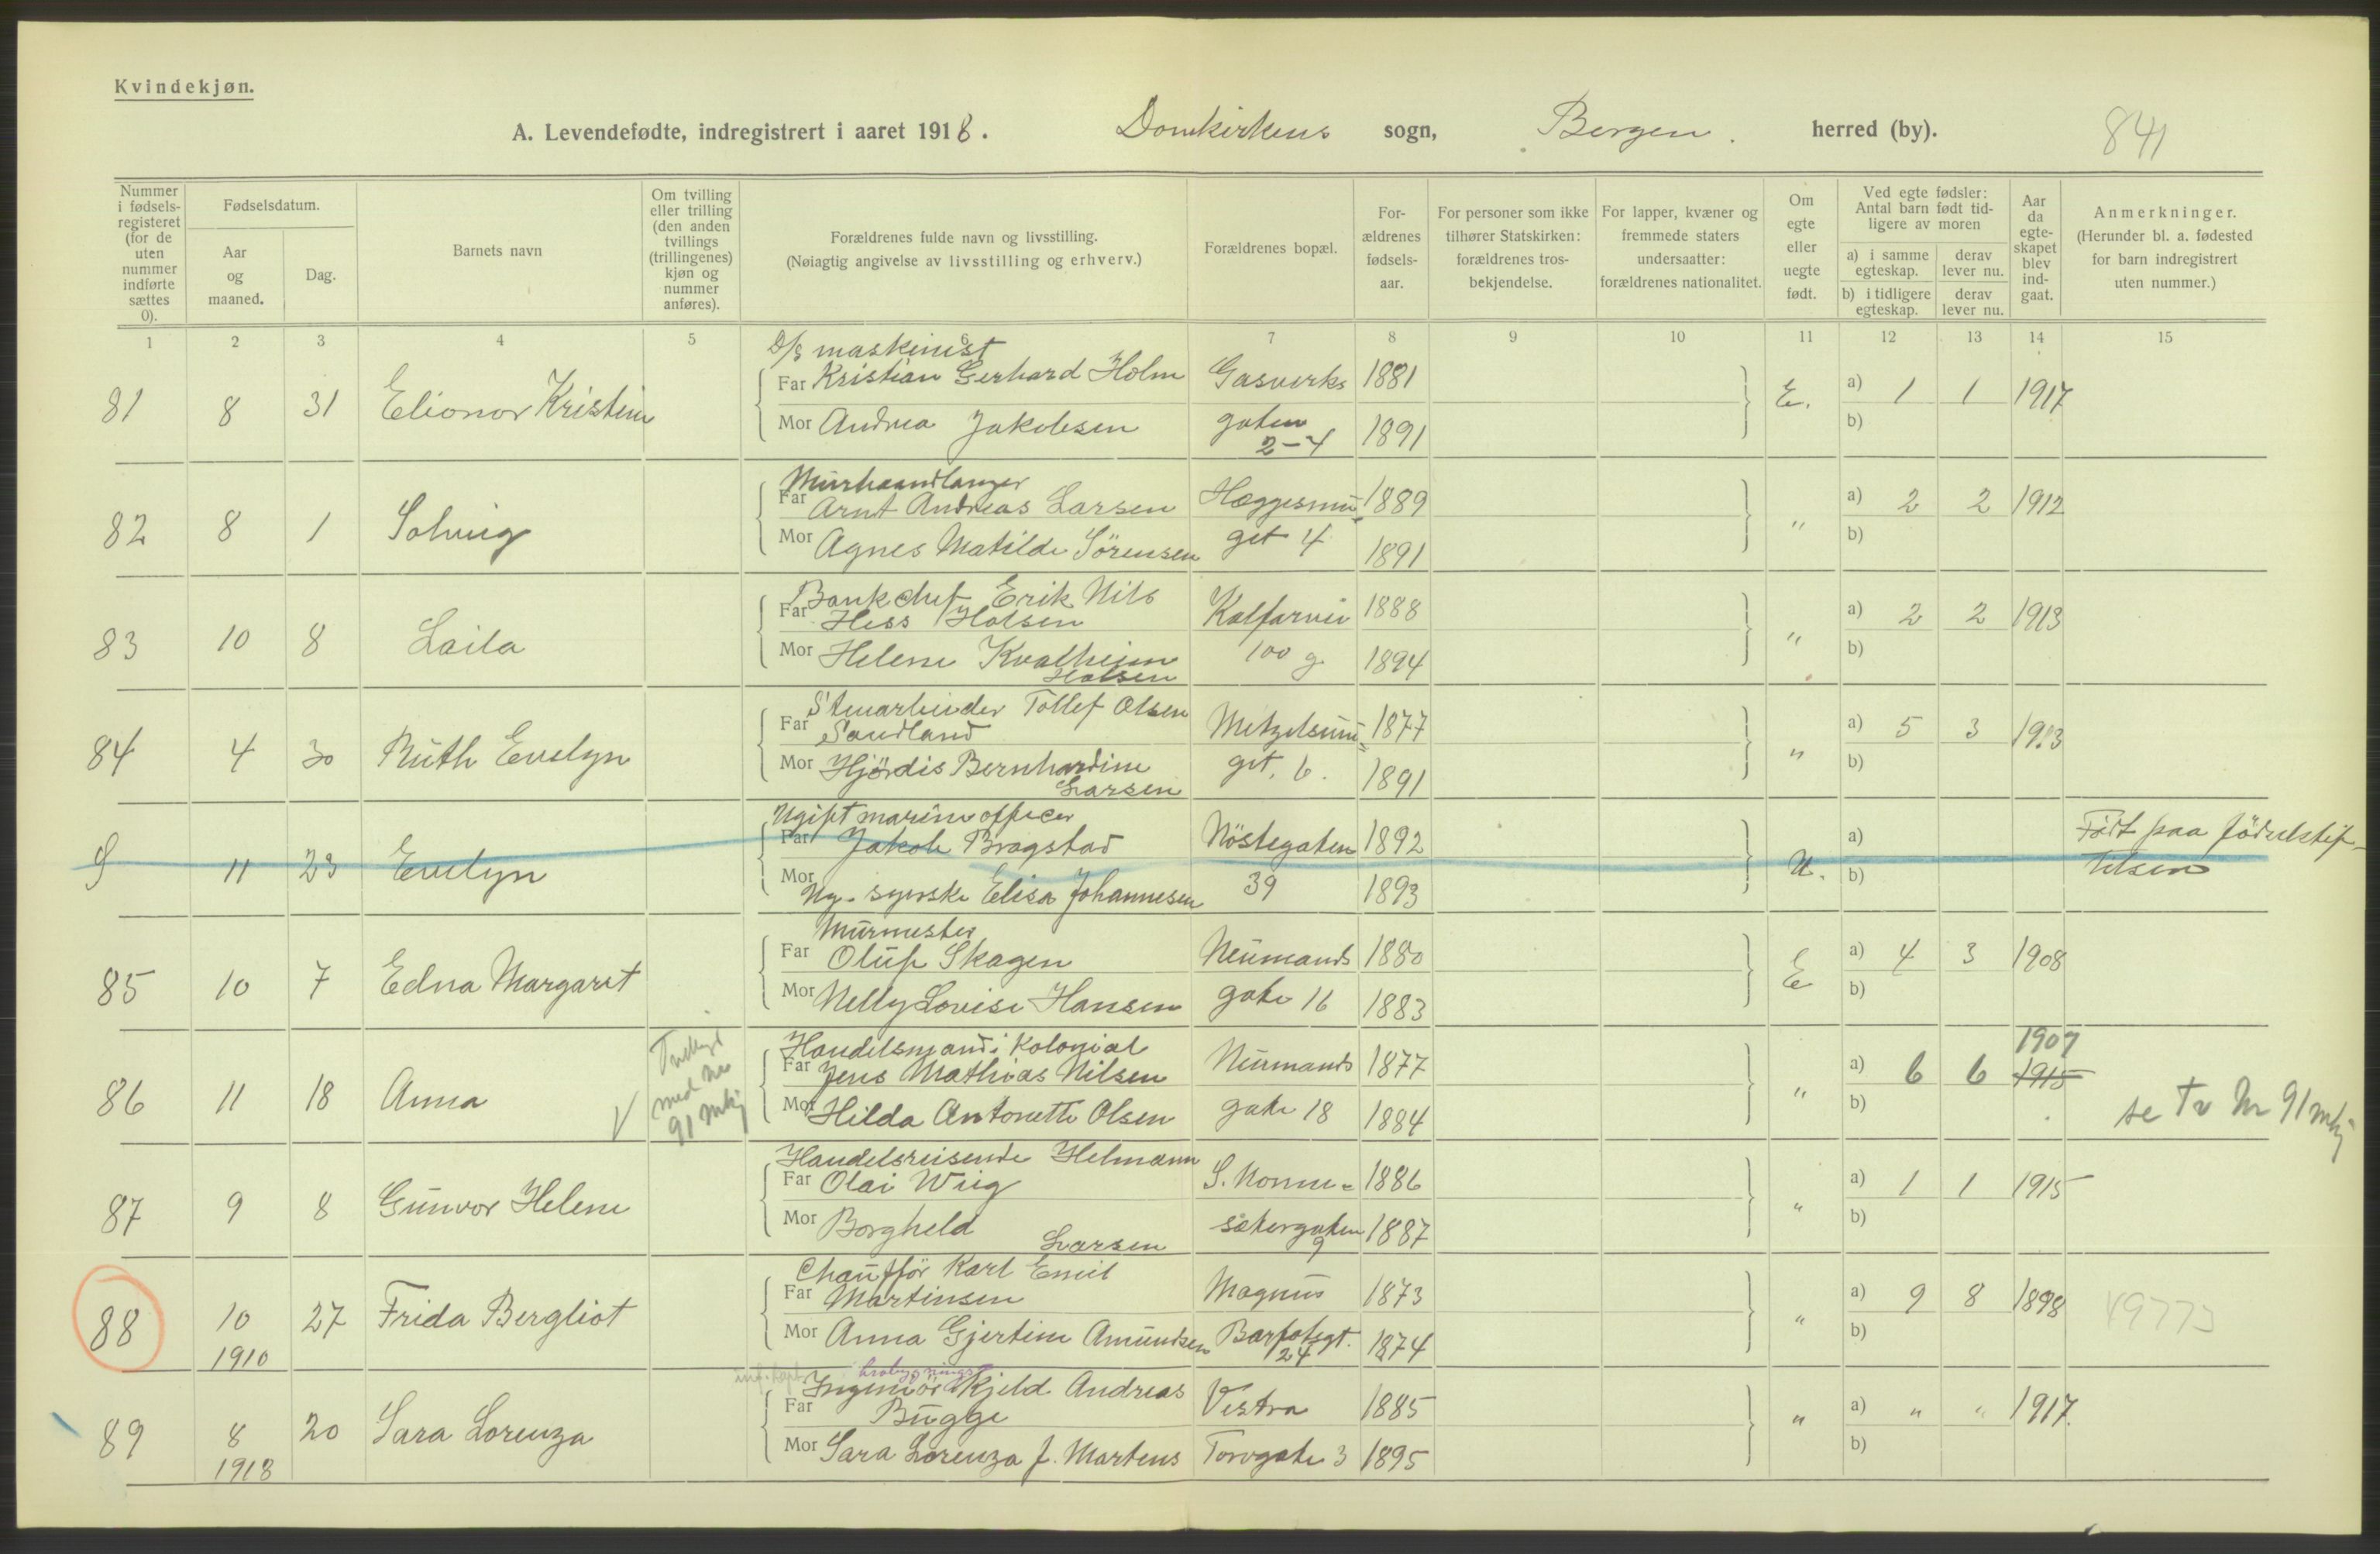 Kvindekjøn.
A. Levendefødte, indregistrert i aaret 1918. Domkirkens sogn, Bergen. herred (by). 841
Nummer i fødsels-registeret (for de uten nummer indførte sættes 0).
Fødselsdatum.
Aar og maaned.
Dag.
Barnets navn
Om tvilling eller trilling (den anden tvillings (trillingenes) kjøn og nummer anføres).
Forældrenes fulde navn og livsstilling.
(Nøiagtig angivelse av livsstilling og erhverv.)
Forældrenes bopæl.
For-ældrenes fødsels-aar.
For personer som ikke tilhører Statskirken: forældrenes tros-bekjendelse.
For lapper, kvæner og fremmede staters undersaatter: forældrenes nationalitet.
Om egte eller uegte født.
Ved egte fødsler: Antal barn født tid-ligere av moren
a) i samme egteskap.
derav lever nu.
b) i tidligere egteskap.
derav lever nu.
Aar da egte-skapet blev ind-gaat.
Anmerkninger.
(Herunder bl. a. fødested for barn indregistrert uten nummer.)
1 2 3 4 5 6 7 8 9 10 11 12 13 14 15
D/s maskinist
81 8 31 Elionor Kristine Far Kristian Gerhard Holm Gasverks 1881 E. a) 1 1 1917
Mor Andrea Jakobsen gaten 2-4 1891 b)
Murhaandlanger
82 8 1 Solveig Far Arnt Andreas Larsen Hæggesmu 1889 " a) 2 2 1912
Mor Agnes Matilde Sörensen get 4 1891 b)
Bankchef Erik Nils
83 10 8 Laila Far Hess Holsen Kalfarvei 1888 " a) 2 2 1913
Mor Helene Kvalheim Holsen 100 g 1894 b)
Stenarbeider Tollef Olsen
84 4 30 Ruth Evelyn Far Sandland Metzelsmu 1877 " a) 5 3 19.3
Mor Hjördis Bernhardine Larsen get. 6. 1891 b)
Ugift marineofficer
11 23 Evelyn Far Jakob Bragstad Nöstegaten 1892 U. a) Født paa födselstif-
Mor Ug. syerske Elisa Johannesen 39 1893 b) telsen
Murmester
85 10 7 Edna Margaret Far Oluf Skagen Neumands 1880 E a) 4 3 1908
Mor Nelly Lovise Hansen gate 16 1883 b)
Handelsmand i Kolonial 1907
86 11 18 Anna √ med nr 91 mkj Far Jens Mathias Nilsen Neumands 1877 " a) 6 6 1915
Mor Hilda Antonette Olsen gate 18 1884 b) se Tv Nr 91 mkj
Handelsreisende Helmann
87 9 8 Gunvor Helene Far Olai Wiig S. Nonne- 1886 " a) 1 1 1915
Mor Borgheld Larsen sætergaten 9 1887 b)
Chauffør Karl Emil
88 10 27 Frida Bergliot Far Martinsen Magnus 1873 " a) 9 8 1898
1910 Mor Anna Gjertine Amundsen Barfotsgt. 24 1874 b)
Ingeniör Kjeld Andreas
89 8 20 Sara Lorenza Far Bugge Vestra 1885 " a) " " 1917.
1918 Mor Sara Lorenza f. Martens Torvgate 3 1895 b)